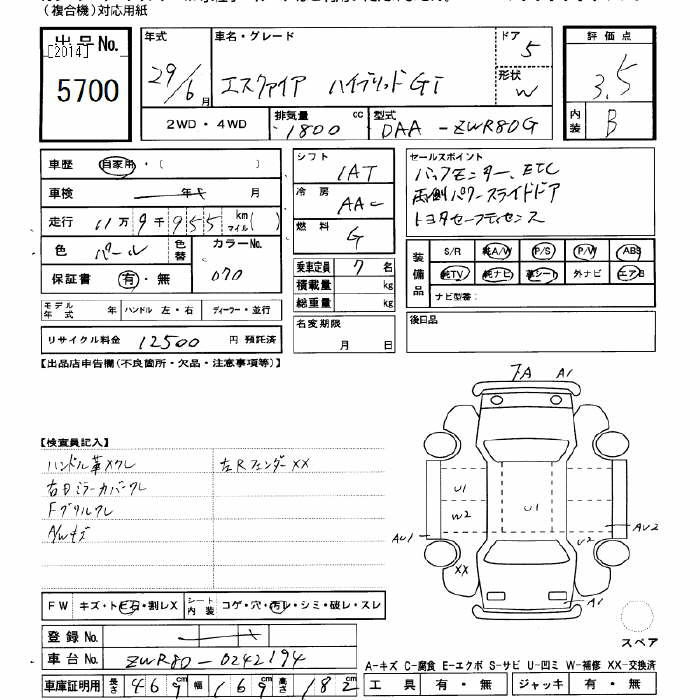 (複合機)対応用紙
出品No.
[2014]
5700
年式
29/6月
車名・グレード
エスクァイア ハイブリッドGi
ドア
5
形状
W
評価点
3.5
内装
B
2WD・4WD
排気量
1800
cc
型式
DAA-ZWR80G
車歴
自家用・( )
車検
年 月
走行
11万9千955
km
マイル
( )
色
パール
色替
カラーNo.
070
保証書
有・無
モデル年式
年
ハンドル 左・右
ディーラー・並行
リサイクル料金
12500
円 預託済
シフト
IAT
冷房
AAC
燃料
G
乗車定員
7名
積載量
kg
総重量
kg
名変期限
月 日
セールスポイント
バックモニター、ETC
両側パワースライドドア
トヨタセーフティセンス
装備品
S/R
純A/W
P/S
P/W
ABS
純TV
純ナビ
革シート
外ナビ
エアB
ナビ型番:
後日品
【出品店申告欄(不良箇所・欠品・注意事項等)】
【検査員記入】
ハンドル革スレ
左RフェンダーXX
右Dミラーカバークレ
Fグリルクレ
A/Wキズ
7A
A1
U1
W2
U1
AU1
AU2
U2
XX
A1
スペア
FW
キズ・トビ石・割レX
シート内装
コゲ・穴・汚レ・シミ・破レ・スレ
登録No.
車台No.
ZWR80-0242194
車庫証明用
長さ
469
幅
169
高さ
182
A-キズ C-腐食 E-エクボ S-サビ U-凹ミ W-補修 XX-交換済
工具
有・無
ジャッキ
有・無